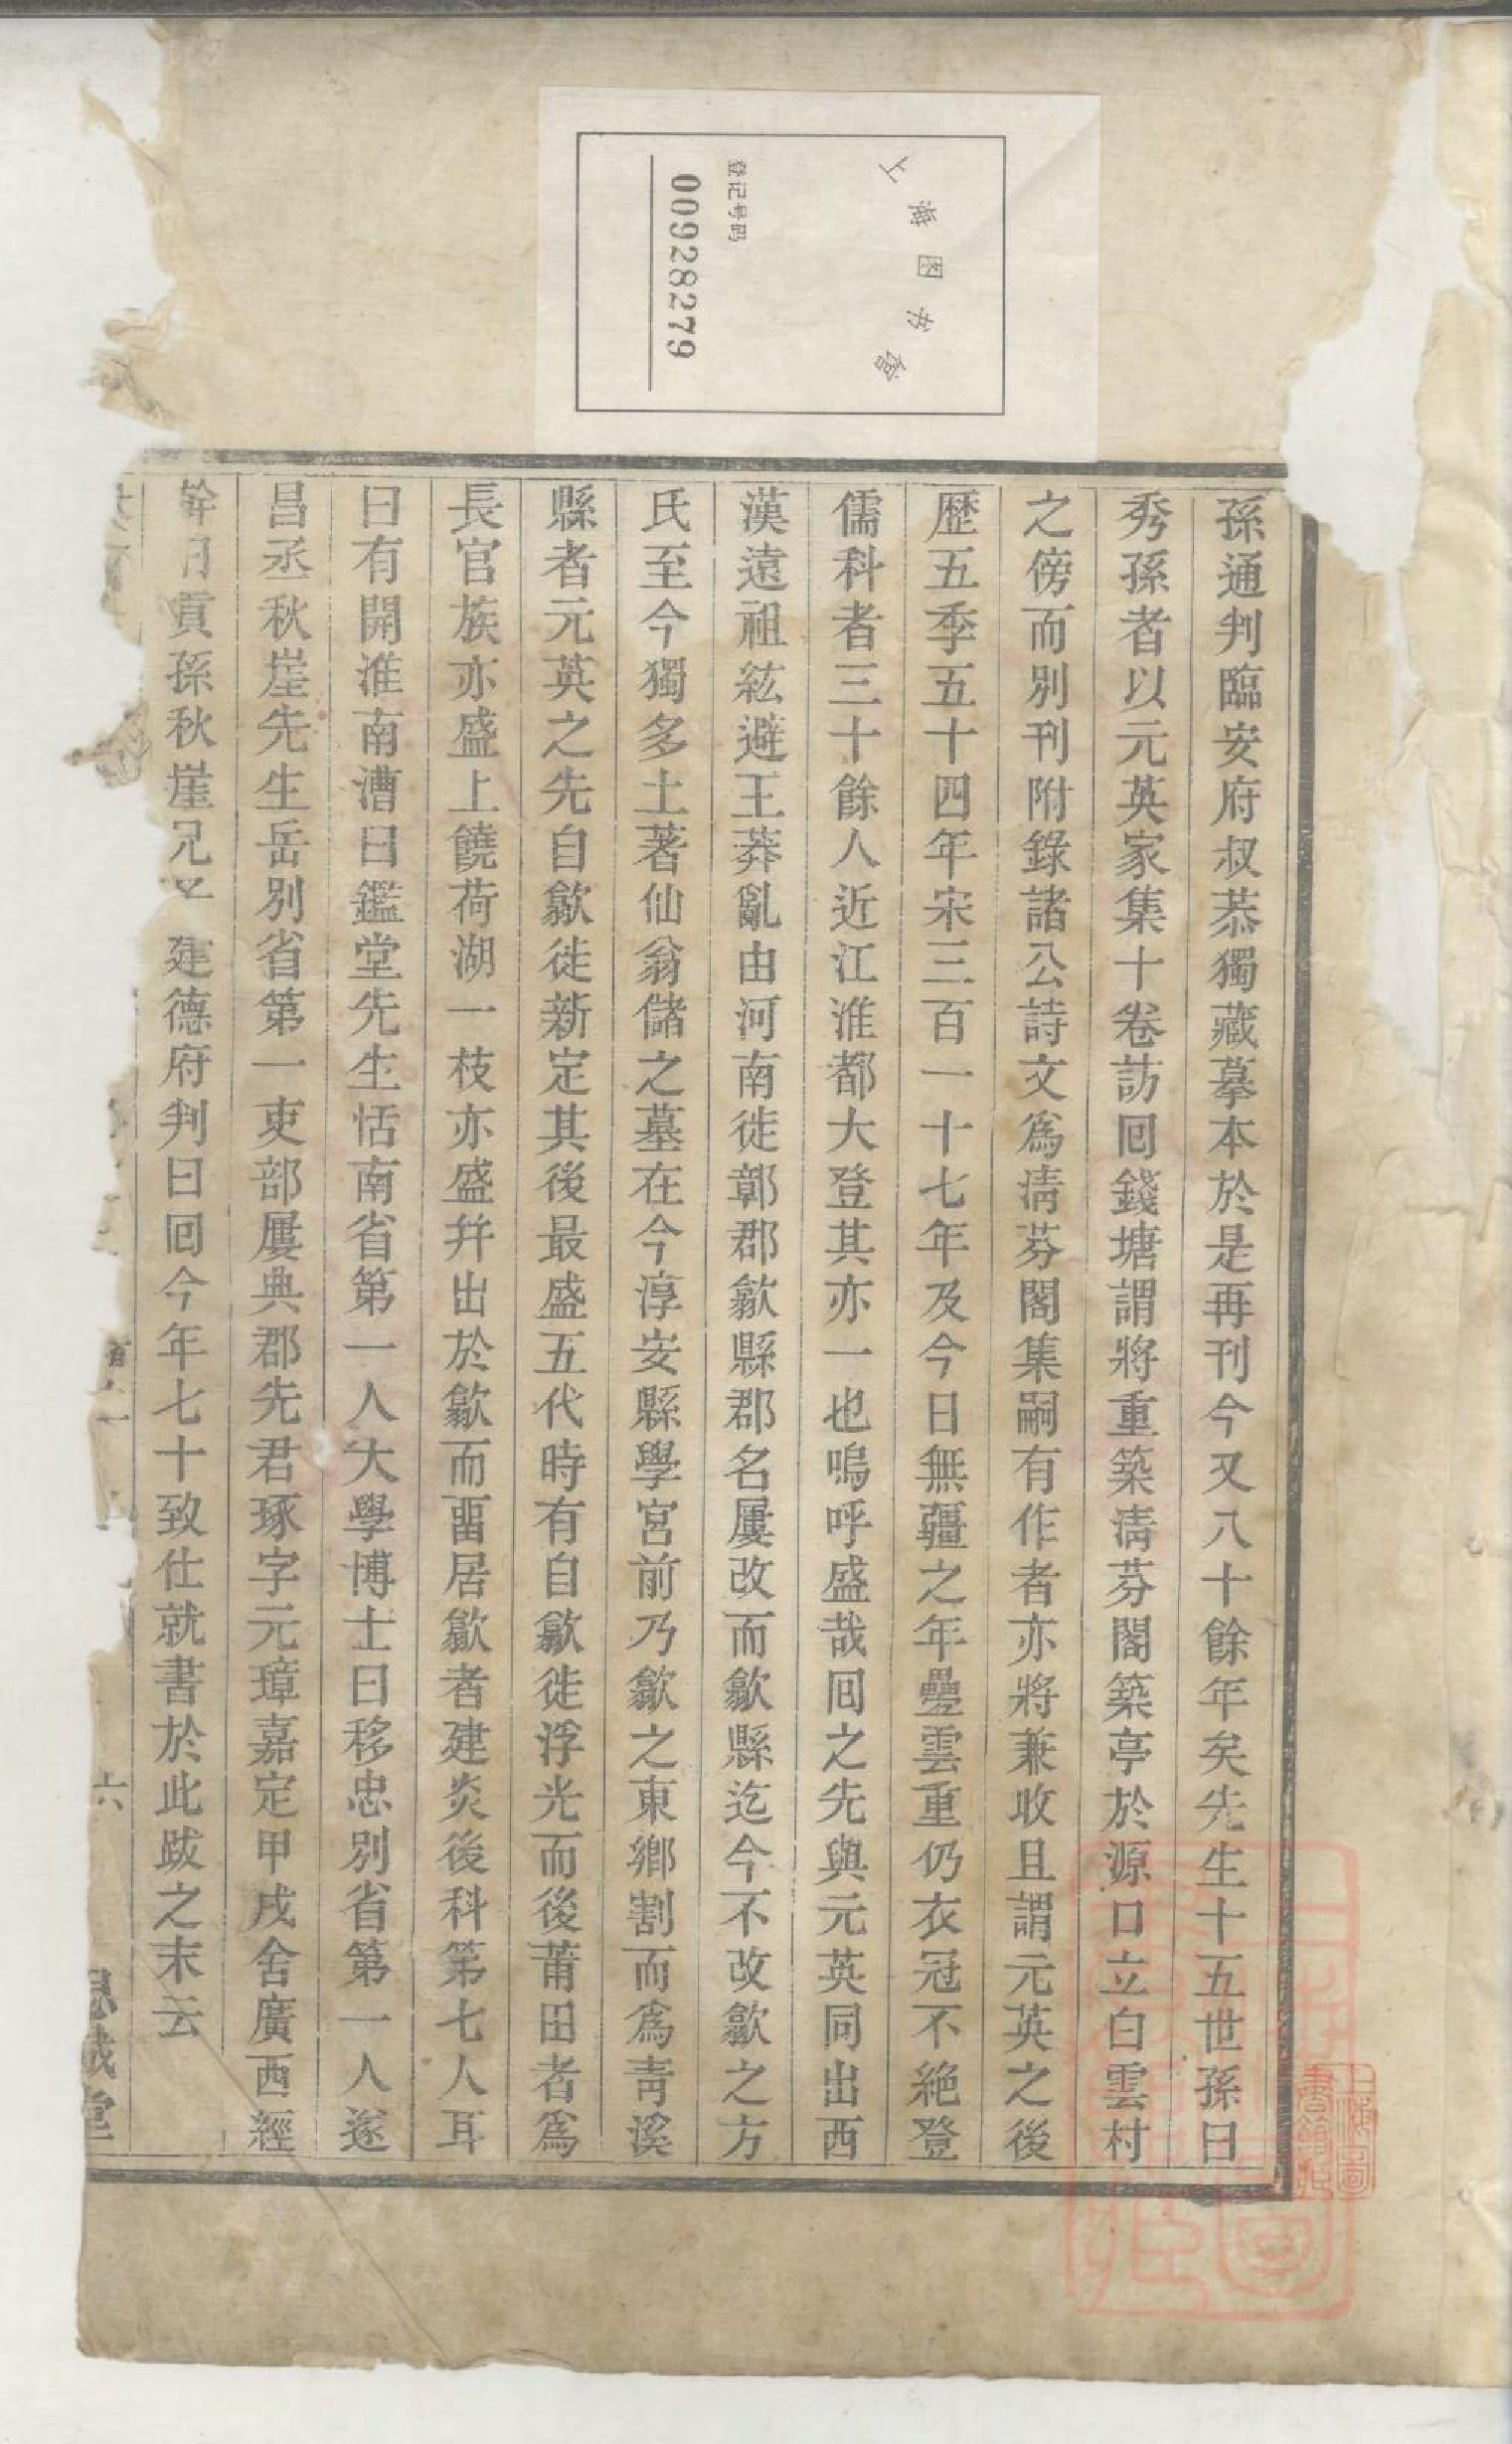 上海图书馆
登记号码
00928279
孫通判臨安府叔恭獨藏摹本於是再刊今又八十餘年矣先生十五世孫曰
秀孫者以元英家集十卷訪囘錢塘謂將重築清芬閣築亭於源口立白雲村
之傍而別刊附錄諸公詩文爲清芬閣集嗣有作者亦將兼收且謂元英之後
歷五季五十四年宋三百一十七年及今日無疆之年疊雲重仍衣冠不絶登
儒科者三十餘人近江淮都大登其亦一也嗚呼盛哉囘之先與元英同出西
漢遠祖紘避王莽亂由河南徙鄣郡歙縣郡名屢改而歙縣迄今不改歙之方
氏至今獨多土著仙翁儲之墓在今淳安縣學宮前乃歙之東鄉割而爲青溪
縣者元英之先自歙徙新定其後最盛五代時有自歙徙浮光而後莆田者爲
長官族亦盛上饒荷湖一枝亦盛幷出於歙而畱居歙者建炎後科第七人耳
曰有開淮南漕曰鑑堂先生恬南省第一人大學博士曰移忠別省第一人遂
昌丞秋崖先生岳別省第一吏部屢典郡先君琢字元璋嘉定甲戌舍廣西經
幹曰貢孫秋崖兄 建德府判曰囘今年七十致仕就書於此跋之末云
六
堂
上海圖書館藏